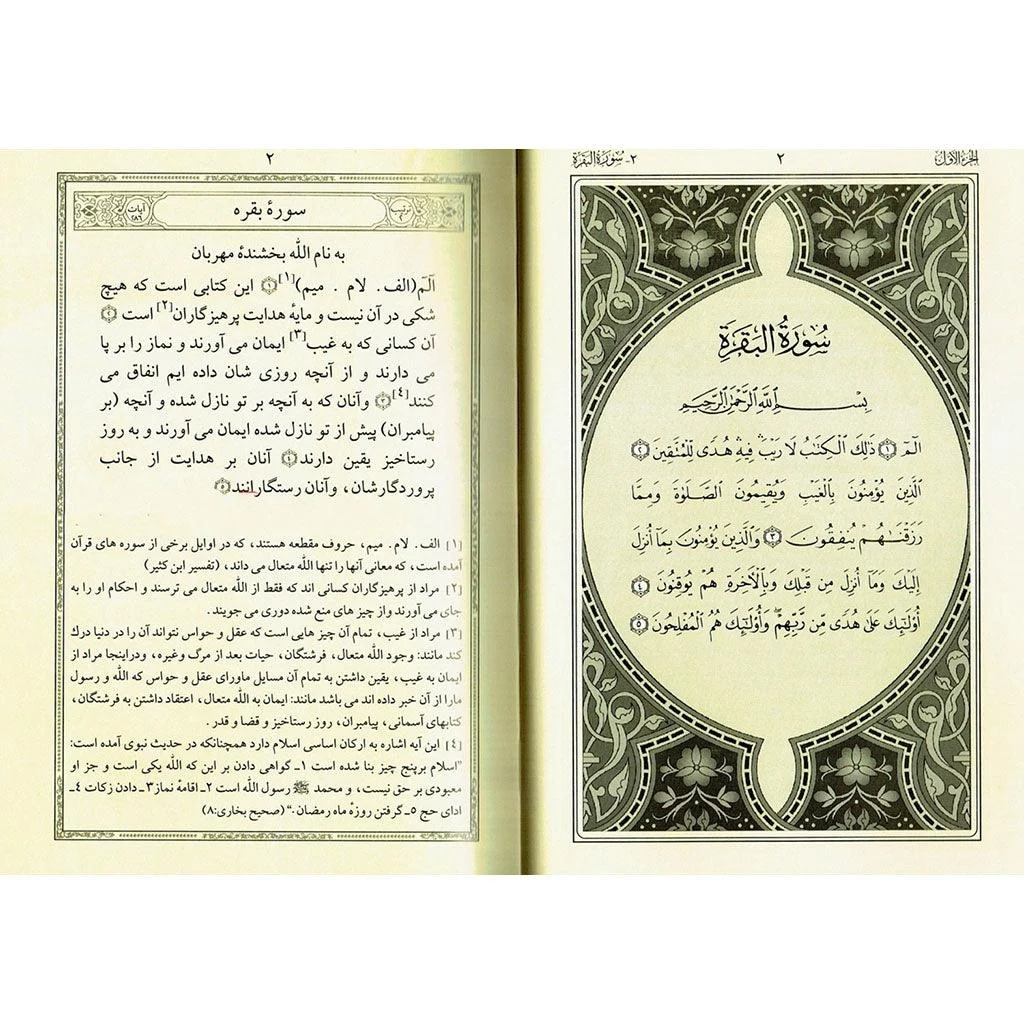 الجزء الأول
٢
٢- سُورَةُ البَقَرَة
سُورَةُ البَقَرَةِ
بِسْمِ ٱللَّهِ ٱلرَّحْمَٰنِ ٱلرَّحِيمِ
الٓمٓ ١ ذَٰلِكَ ٱلْكِتَٰبُ لَا رَيْبَ ۛ فِيهِ ۛ هُدًى لِّلْمُتَّقِينَ ٢
ٱلَّذِينَ يُؤْمِنُونَ بِٱلْغَيْبِ وَيُقِيمُونَ ٱلصَّلَوٰةَ وَمِمَّا
رَزَقْنَٰهُمْ يُنفِقُونَ ٣ وَٱلَّذِينَ يُؤْمِنُونَ بِمَآ أُنزِلَ
إِلَيْكَ وَمَآ أُنزِلَ مِن قَبْلِكَ وَبِٱلْءَاخِرَةِ هُمْ يُوقِنُونَ ٤
أُوْلَٰٓئِكَ عَلَىٰ هُدًى مِّن رَّبِّهِمْ ۖ وَأُوْلَٰٓئِكَ هُمُ ٱلْمُفْلِحُونَ ٥
٢
ترتیب ٢
سورهٔ بقره
آیات ٢٨٦
به نام الله بخشندهٔ مهربان
آلٓمٓ(الف. لام . میم)[١] ١ این کتابی است که هیچ
شکی در آن نیست و مایهٔ هدایت پرهیزگاران[٢] است ٢
آن کسانی که به غیب[٣] ایمان می آورند و نماز را بر پا
می دارند و از آنچه روزی شان داده ایم انفاق می
کنند[٤] ٣ وآنان که به آنچه بر تو نازل شده و آنچه (بر
پیامبران) پیش از تو نازل شده ایمان می آورند و به روز
رستاخیز یقین دارند ٤ آنان بر هدایت از جانب
پروردگارشان، وآنان رستگارانند ٥
[١] الف. لام. میم، حروف مقطعه هستند، که در اوایل برخی از سوره های قرآن
آمده است، که معانی آنها را تنها الله متعال می داند، (تفسیر ابن کثیر)
[٢] مراد از پرهیزگاران کسانی اند که فقط از الله متعال می ترسند و احکام او را به
جای می آورند واز چیز های منع شده دوری می جویند.
[٣] مراد از غیب، تمام آن چیز هایی است که عقل و حواس نتواند آن را در دنیا درک
کند مانند: وجود الله متعال، فرشتگان، حیات بعد از مرگ وغیره، ودراینجا مراد از
ایمان به غیب، یقین داشتن به تمام آن مسایل ماورای عقل و حواس که الله و رسول
مارا از آن خبر داده اند می باشد مانند: ایمان به الله متعال، اعتقاد داشتن به فرشتگان،
کتابهای آسمانی، پیامبران، روز رستاخیز و قضا و قدر .
[٤] این آیه اشاره به ارکان اساسی اسلام دارد همچنانکه در حدیث نبوی آمده است:
"اسلام برپنج چیز بنا شده است ١ـ گواهی دادن بر این که الله یکی است و جز او
معبودی بر حق نیست، و محمد ﷺ رسول الله است ٢ـ اقامهٔ نماز ٣ـ دادن زکات ٤ـ
ادای حج ٥ـ گرفتن روزهٔ ماه رمضان." (صحیح بخاری:٨)